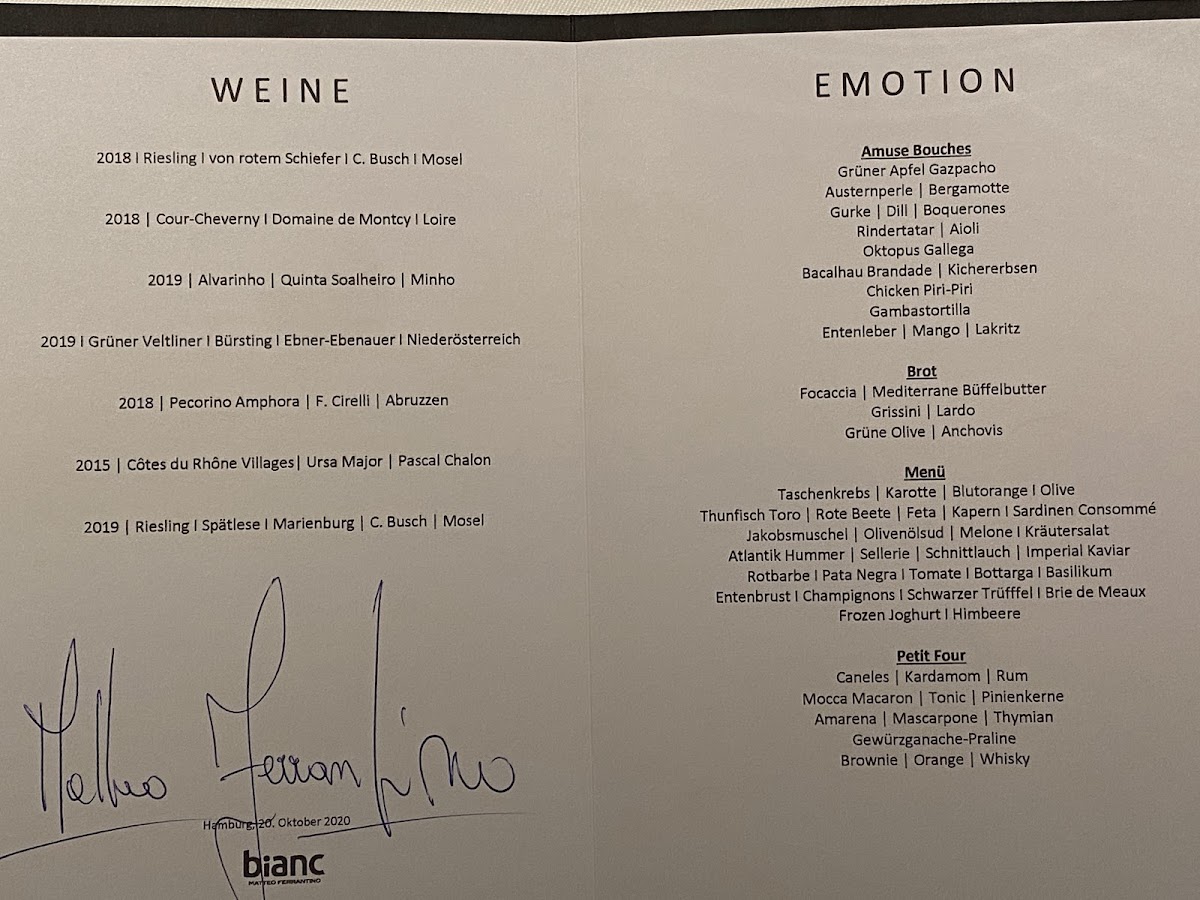 WEINE
2018 I Riesling I von rotem Schiefer I C. Busch I Mosel
2018 | Cour-Cheverny I Domaine de Montcy I Loire
2019 | Alvarinho | Quinta Soalheiro | Minho
2019 I Grüner Veltliner I Bürsting I Ebner-Ebenauer I Niederösterreich
2018 | Pecorino Amphora | F. Cirelli | Abruzzen
2015 | Côtes du Rhône Villages| Ursa Major | Pascal Chalon
2019 | Riesling I Spätlese I Marienburg | C. Busch | Mosel
Matteo Ferrantino
Hamburg, 20. Oktober 2020
bianc
MATTEO FERRANTINO
EMOTION
Amuse Bouches
Grüner Apfel Gazpacho
Austernperle | Bergamotte
Gurke | Dill | Boquerones
Rindertatar | Aioli
Oktopus Gallega
Bacalhau Brandade | Kichererbsen
Chicken Piri-Piri
Gambastortilla
Entenleber | Mango | Lakritz
Brot
Focaccia | Mediterrane Büffelbutter
Grissini | Lardo
Grüne Olive | Anchovis
Menü
Taschenkrebs | Karotte | Blutorange I Olive
Thunfisch Toro | Rote Beete | Feta | Kapern I Sardinen Consommé
Jakobsmuschel | Olivenölsud | Melone I Kräutersalat
Atlantik Hummer | Sellerie | Schnittlauch | Imperial Kaviar
Rotbarbe I Pata Negra I Tomate I Bottarga I Basilikum
Entenbrust I Champignons I Schwarzer Trüfffel I Brie de Meaux
Frozen Joghurt I Himbeere
Petit Four
Caneles | Kardamom | Rum
Mocca Macaron | Tonic | Pinienkerne
Amarena | Mascarpone | Thymian
Gewürzganache-Praline
Brownie | Orange | Whisky